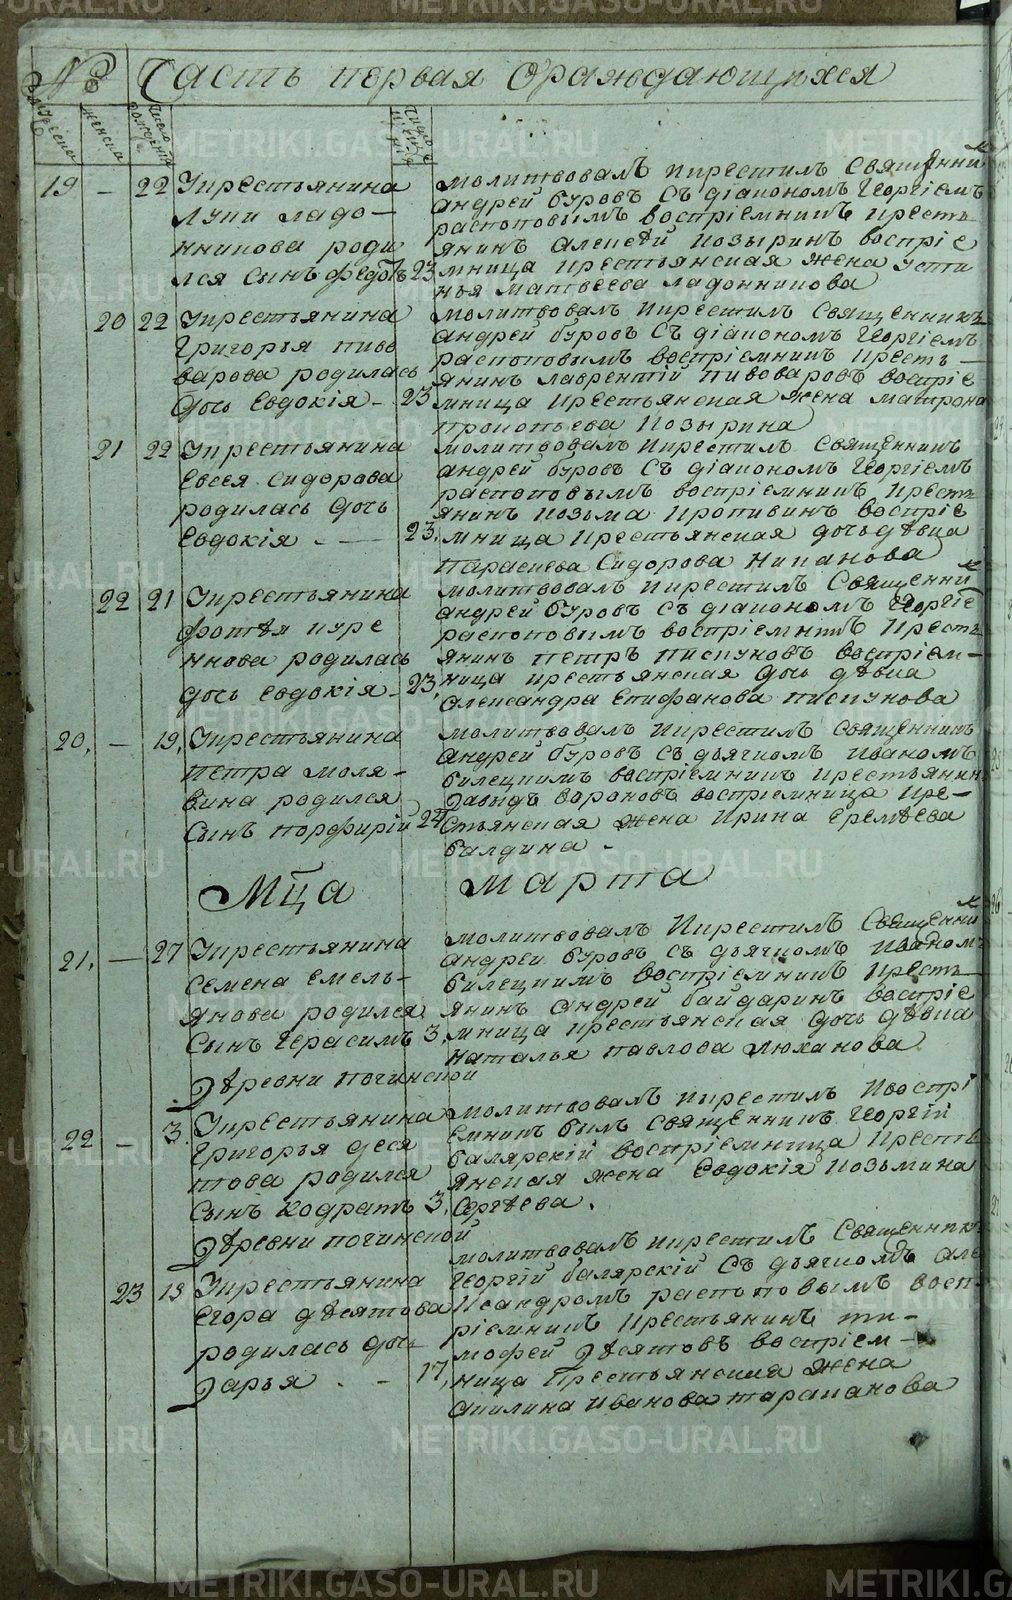 № Часть первая Ораждающихся
мужеска
женска
число рождения
19 – 22 Укрестьянина
Луки ладо–
нникова роди
лся сынъ Федотъ 23
молитвовалъ икрестилъ Священник
андрей буровъ Съ діакономъ Георгіемъ
распоповымъ воспріемникъ кресть
янинъ алексей козыринъ воспріе
мница крестьянская жена усти
нья матвеева ладонникова
20 22 Укрестьянина
Григорья пиво
варова родилась
дочь Евдокія – 23
молитвовалъ икрестилъ Священникъ
андрей буровъ Съ діакономъ Георгіемъ
распоповымъ воспріемникъ кресть–
янинъ лаврентій пивоваровъ воспріе
мница крестьянская жена матрона
прокопьева козырина
21 22 Укрестьянина
Евсея Сидорова
родилась дочь
Евдокія – 23.
молитвовалъ икрестилъ Священникъ
андрей буровъ Съ діакономъ Георгіемъ
распоповымъ воспріемникъ кресть
янинъ козьма кропивинъ воспріе
мница крестьянская дочь дѣвица
парасковья Сидорова
22 21 Укрестьянина
фотѣя куре
ннова родилась
дочь Евдокія – 23,
молитвовалъ икрестилъ Священник
андрей буровъ Съ діакономъ Георгіе
распоповымъ воспріемникъ кресть
янинъ петръ пискуновъ воспріем–
ница крестьянская дочь дѣвица
Александра Епифанова пискунова
20. – 19. Укрестьянина
петра моля–
вина родился
сынъ порфирій 24
молитвовалъ икрестилъ Священникъ
андрей буровъ Съ дьячкомъ иваномъ
билецкимъ воспріемникъ крестьянинъ
Давидъ вороновъ воспріемница кре–
стьянская жена Ирина Еремѣева
балдина –
Мца марта
21. – 27 Укрестьянина
Семена Емель–
янова родился
сынъ Герасимъ 3.
молитвовалъ икрестилъ Священник
андрей буровъ Съ дьячкомъ иваном
билецкимъ воспріемникъ кресть–
янинъ андрей байдаринъ воспріе
мница крестьянская дочь дѣвица
наталья павлова люханова
Деревни починской
22 – 3. Укрестьянина
Григорья деся
това родился
сынъ кодратъ 3.
молитвовалъ икрестилъ ивоспрі
емникъ былъ Священникъ Георгій
балярскій воспріемница кресть
янская жена Евдокія козьмина
Сергѣева.
Деревни починской
23 13 Укрестьянина
Егора дѣсятова
родилась дочь
Дарья. – 17,
молитвовалъ икрестилъ Священникъ
Георгій балярскій Съ дьячкомъ але
ксандромъ распоповымъ восп
ріемникъ крестьянинъ ти–
мофей Десятовъ воспріем–
ница крестьянская жена
акилина иванова тараканова
METRIKI.GASO-URAL.RU